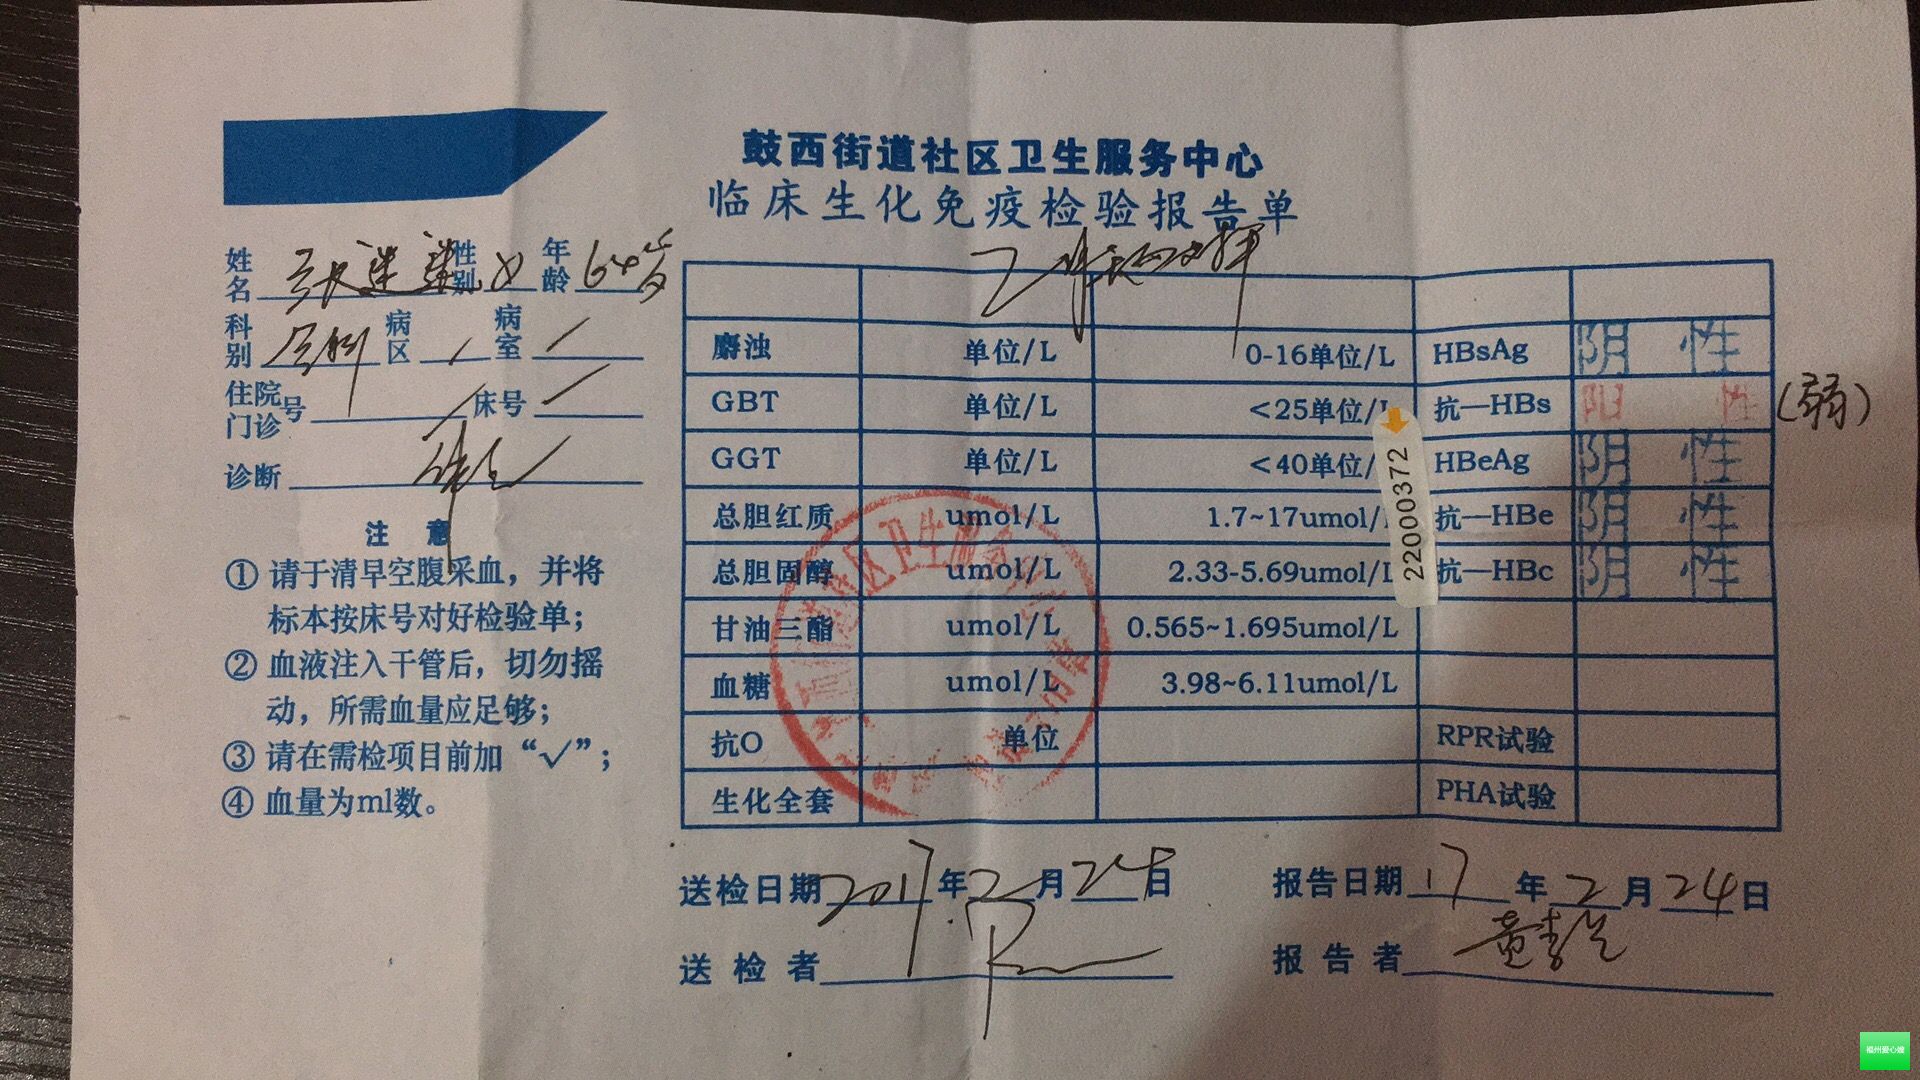 鼓西街道社区卫生服务中心
临床生化免疫检验报告单
姓名 张 性别 女 年龄 64岁
科别 病区 / 病室 /
住院门诊号 / 床号 /
诊断
注 意
① 请于清早空腹采血，并将
标本按床号对好检验单；
② 血液注入干管后，切勿摇
动，所需血量应足够；
③ 请在需检项目前加“√”；
④ 血量为ml数。
乙肝两对半
麝浊 单位/L 0-16单位/L HBsAg 阴 性
GBT 单位/L <25单位/L 抗—HBs 阳 性 (弱)
GGT 单位/L <40单位/ HBeAg 阴 性
总胆红质 umol/L 1.7~17umol/ 抗—HBe 阴 性
总胆固醇 umol/L 2.33-5.69umol/L 抗—HBc 阴 性
甘油三酯 umol/L 0.565~1.695umol/L
血糖 umol/L 3.98~6.11umol/L
抗O 单位 RPR试验
生化全套 PHA试验
22000372
送检日期 2017年2月24日 报告日期 17年2月24日
送检者 报告者
福州爱心嫂